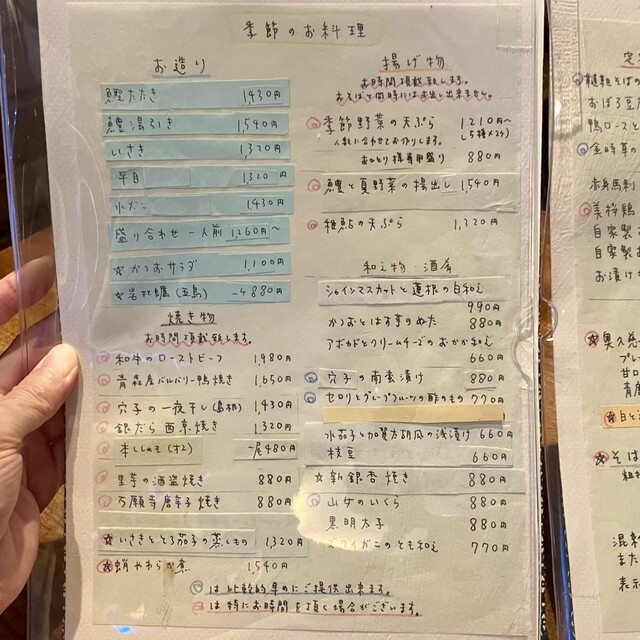 季節のお料理
お造り
鰹たたき 1,430円
鱧湯引き 1,540円
いさき 1,320円
平目 1,320円
水だこ 1,430円
盛り合わせ一人前 1,260円〜
☆かつおサラダ 1,100円
☆岩牡蠣(五島) 一ヶ880円
焼き物
お時間頂戴致します。
和牛のローストビーフ 1,980円
青森産バルバリー鴨焼き 1,650円
穴子の一夜干し(島根) 1,430円
銀だら西京焼き 1,320円
本ししゃも(オス) 一尾480円
里芋の酒盗焼き 880円
万願寺唐辛子焼き 880円
☆いさきととろ茄子の蒸しもの 1,320円
☆蛸やわらか煮 1,540円
揚げ物
お時間頂戴致します。
おそばと同時にはお出し出来ません。
季節野菜の天ぷら 1210円〜
人数に合わせてお作りします。
おひとり様専用盛り 880円
鱧と夏野菜の揚出し 1,540円
稚鮎の天ぷら 1,320円
和え物・酒肴
シャインマスカットと蓮根の白和え
990円
かつおとはす芋のぬた 880円
アボカドとクリームチーズのおかか和え
660円
穴子の南蛮漬け 880円
セロリとグレープフルーツの酢のもの 770円
水茄子と加賀太胡瓜の浅漬け 660円
枝豆 660円
☆新銀杏焼き 880円
山女のいくら 880円
黒明太子 880円
ズワイガニのとも和え 770円
は比較的早めにご提供出来ます。
は特にお時間を頂く場合がございます。
おぼろ豆
鴨ロースと
金時草の
赤身馬刺
美桜鶏
自家製
自家製
お漬け
奥久慈
プレ
甘口
青唐
☆そば
混雑
また
表示